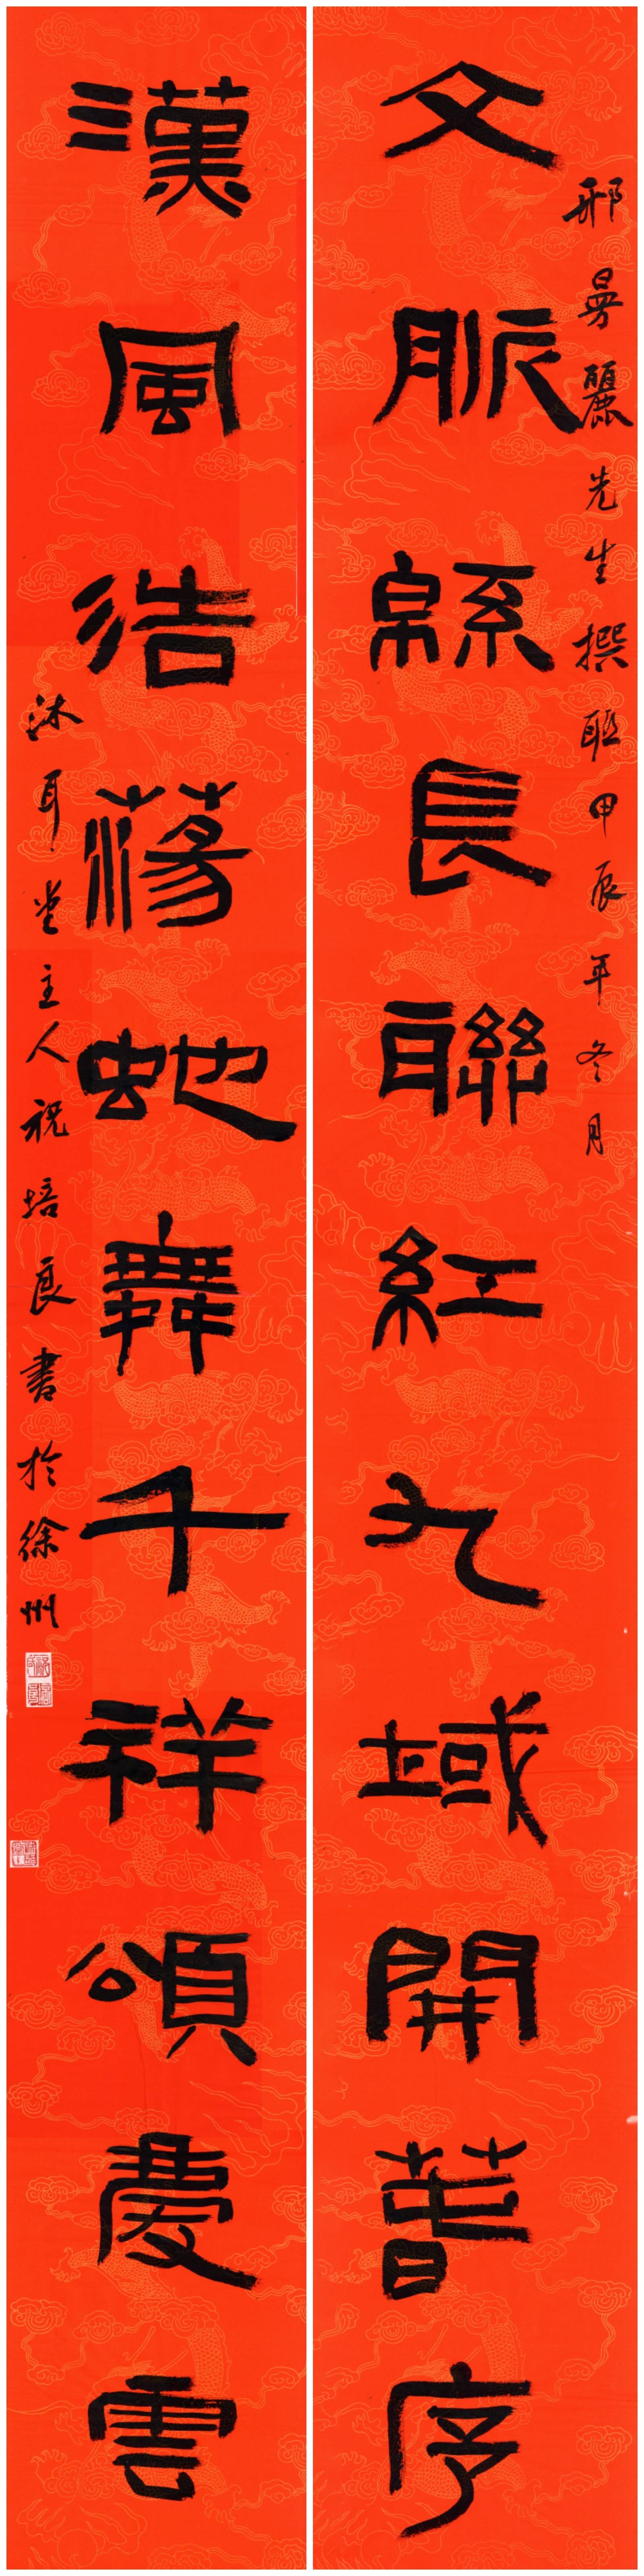 文脈緜長聯紅九域開春序
邢曼麗先生撰联甲辰年冬月
漢風浩蕩蛇舞千祥頌慶雲
沐耳堂主人祝培良書於徐州